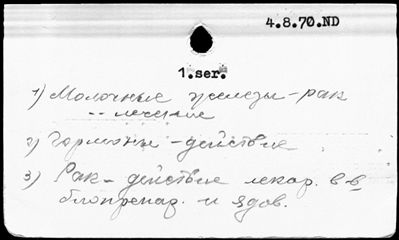 4.8.70.ND
1.ser.
1) Молочные железы - рак
-"- лечение
2) Гормоны - действие
3) Рак - действие лекар. в-в
биопрепар. и ядов.